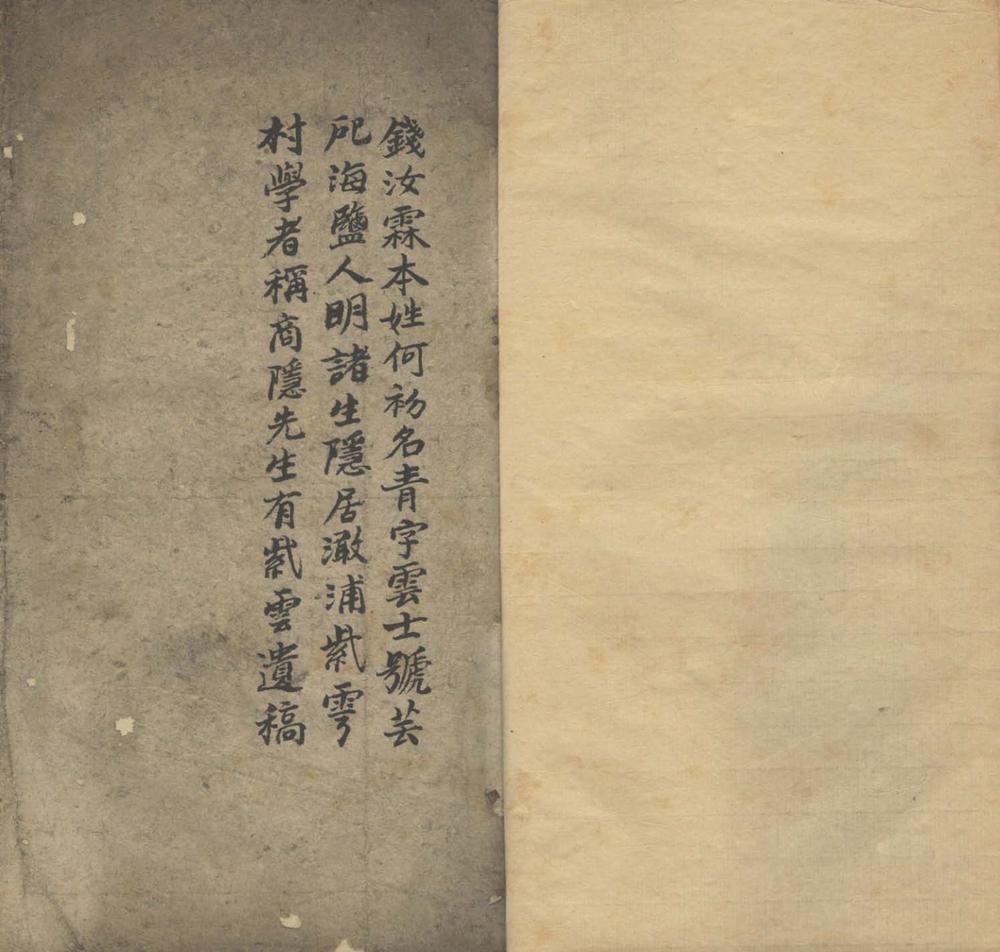 錢汝霖本姓何初名青字雲士號芸
戺海鹽人明諸生隱居澉浦紫雲
村學者稱商隱先生有紫雲遺稿